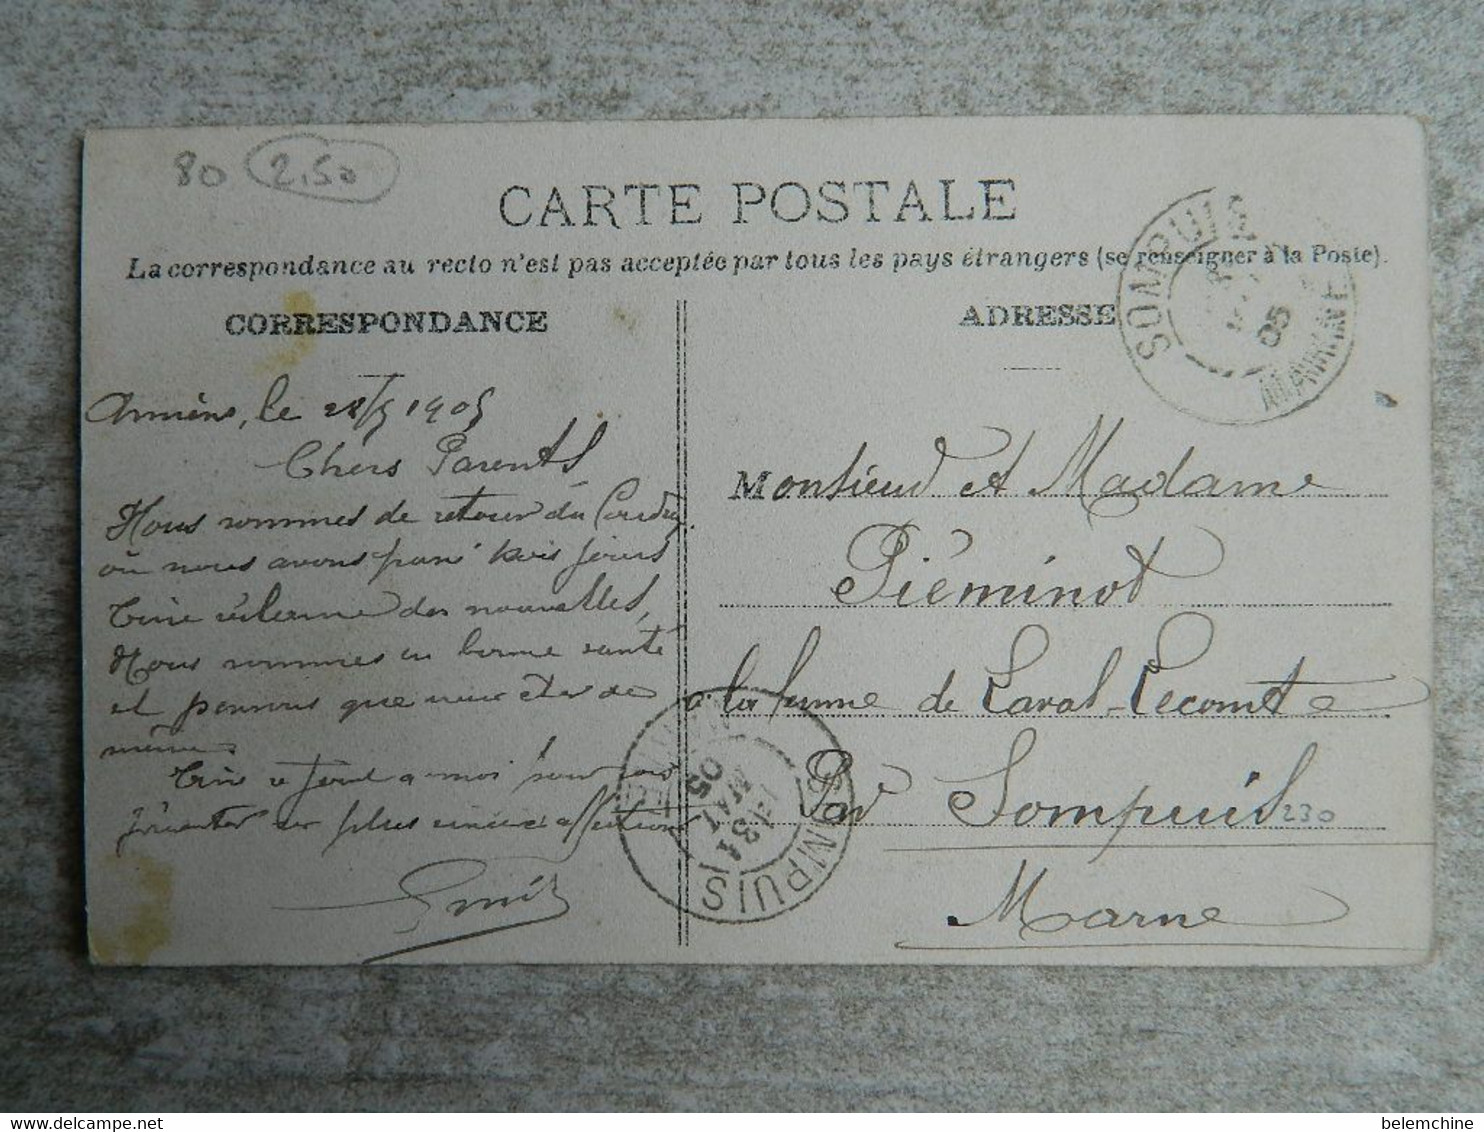 80 2,50
CARTE POSTALE
La correspondance au recto n'est pas acceptée par tous les pays étrangers (se renseigner à la Poste).
CORRESPONDANCE
Amiens, le 28/5 1905
Chers Parents
Nous sommes de retour du
où nous avons passé trois jours
des nouvelles,
Nous sommes en bonne santé
et pensons que vous êtes de
même.
a moi pour vous
plus sincère affection
ADRESSE
Monsieur et Madame
Piéminot
a la ferme de Laval-Lecomte
Par Sompuis 230
Marne
SOMPUIS 05 MARNE
SOMPUIS 31 MAI 05
belemchine